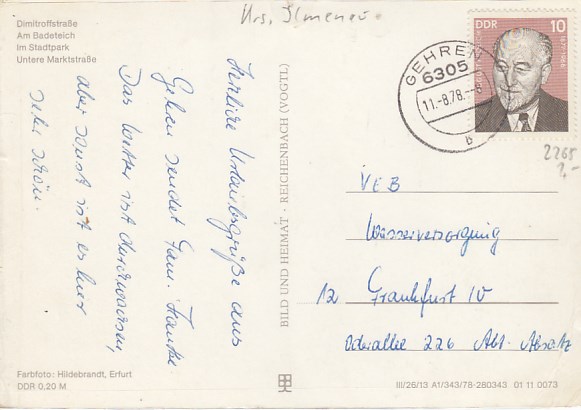 Krs. Ilmenau
Dimitroffstraße
Am Badeteich
Im Stadtpark
Untere Marktstraße
Herzliche Urlaubsgrüße aus
Gehren sendet Fam. Franke
Das Wetter ist durchwachsen,
aber sonst ist es hier
sehr schön.
Farbfoto: Hildebrandt, Erfurt
DDR 0,20 M
BILD UND HEIMAT · REICHENBACH (VOGTL)
GEHREN
6305
11.-8.78.--8
b
DDR 10
2265
1,-
VEB
Wasserversorgung
12 Frankfurt IV
Oderallee 226 Abt. Absatz
III/26/13 A1/343/78-280343 01 11 0073